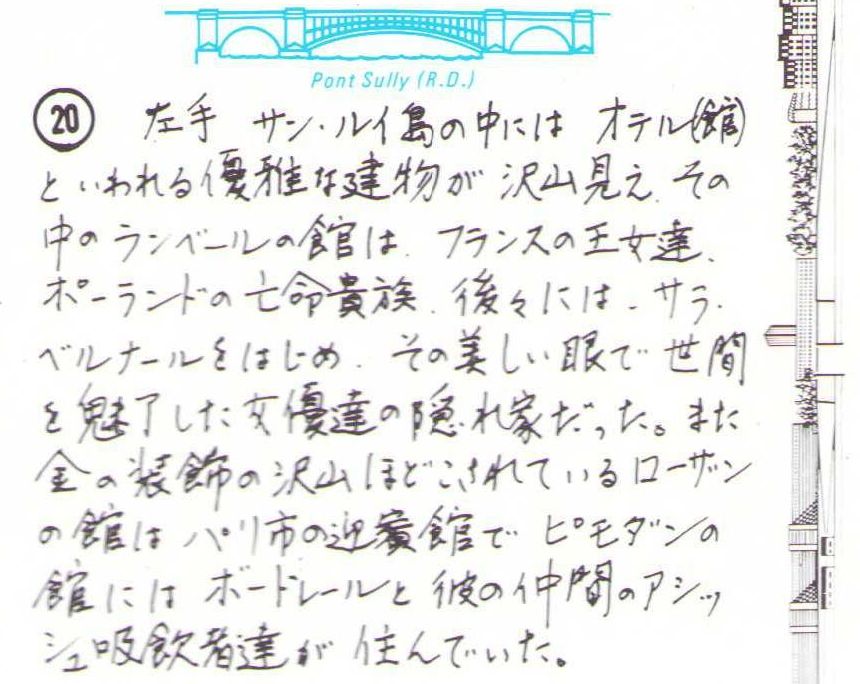 Pont Sully (R.D.)
20 左手 サン・ルイ島の中には オテル(館)
といわれる優雅な建物が 沢山見え、その
中のランベールの館は、フランスの王女達、
ポーランドの亡命貴族、後々には、サラ・
ベルナールをはじめ、その美しい眼で世間
を魅了した女優達の隠れ家だった。また
金の装飾の沢山ほどこされているローザン
の館は パリ市の迎賓館で ピモダンの
館には ボードレールと 彼の仲間のアシッ
シュ吸飲者達が 住んでいた。